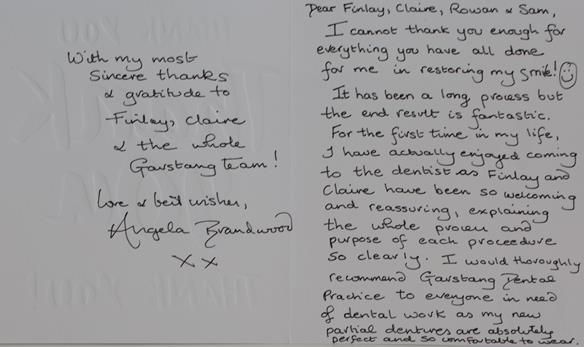 With my most
Sincere thanks
& gratitude to
Finlay, Claire
& the whole
Garstang Team!
Love & best wishes,
Angela Brandwood
xx
Dear Finlay, Claire, Rowan & Sam,
I cannot thank you enough for
everything you have all done
for me in restoring my smile!
It has been a long process but
the end result is fantastic.
For the first time in my life,
I have actually enjoyed coming
to the dentist as Finlay and
Claire have been so welcoming
and reassuring, explaining
the whole process and
purpose of each proceedure
so clearly. I would thoroughly
recommend Garstang Dental
Practice to everyone in need
of dental work as my new
partial dentures are absolutely
perfect and so comfortable to wear.
THANK YOU!